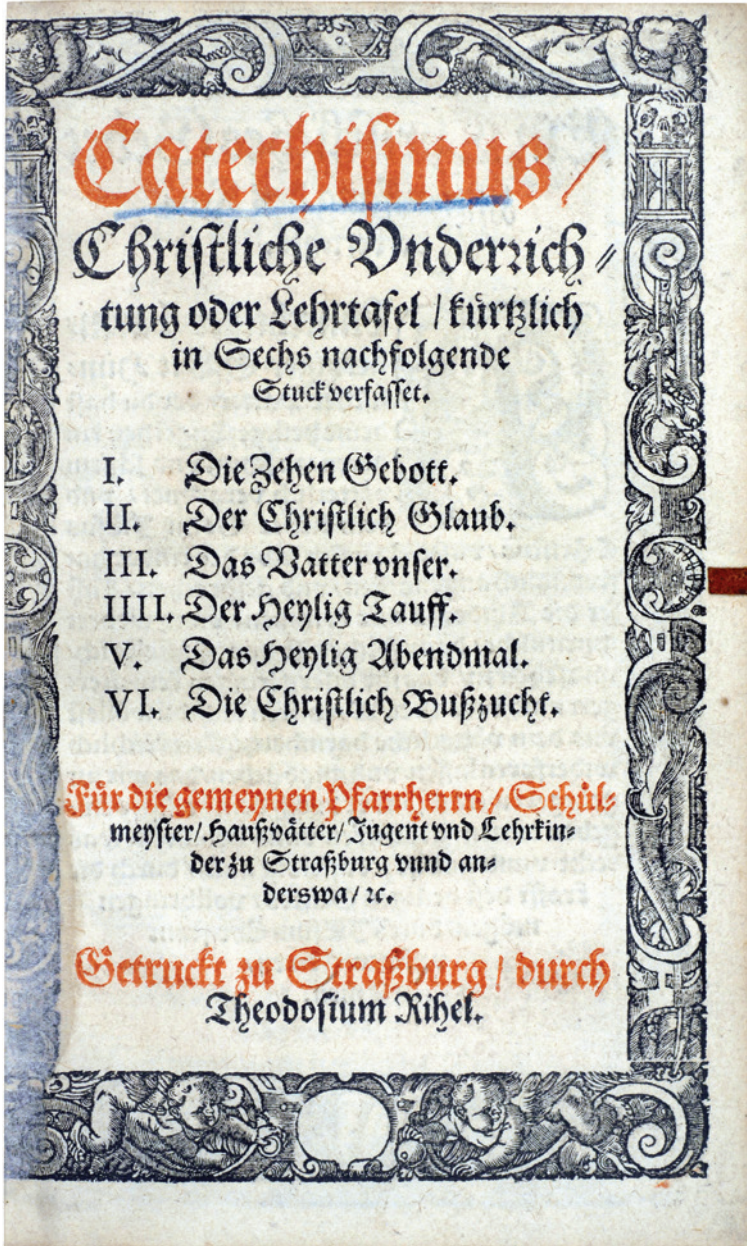 Catechismus/
Christliche Vnderrich⸗
tung oder Lehrtafel / kürtzlich
in Sechs nachfolgende
Stuck verfasset.
I. Die Zehen Gebott.
II. Der Christlich Glaub.
III. Das Vatter vnser.
IIII. Der Heylig Tauff.
V. Das Heylig Abendmal.
VI. Die Christlich Bußzucht.
Für die gemeynen Pfarrherrn/ Schůl⸗
meyster/ Haußvätter/ Jugent vnd Lehrkin⸗
der zu Straßburg vnnd an⸗
derswa/ ꝛc.
Getruckt zu Straßburg / durch
Theodosium Rihel.